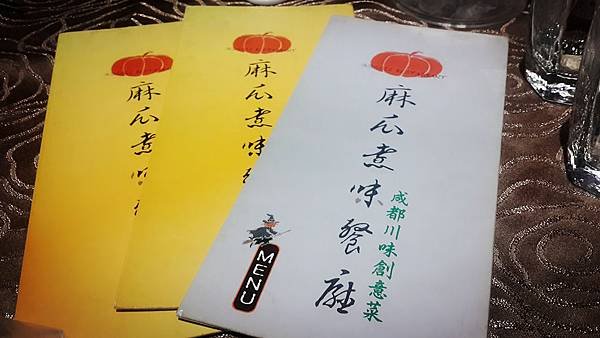 麻瓜煮味
麻瓜煮味
麻瓜煮味餐廳
成都川味創意菜
MENU